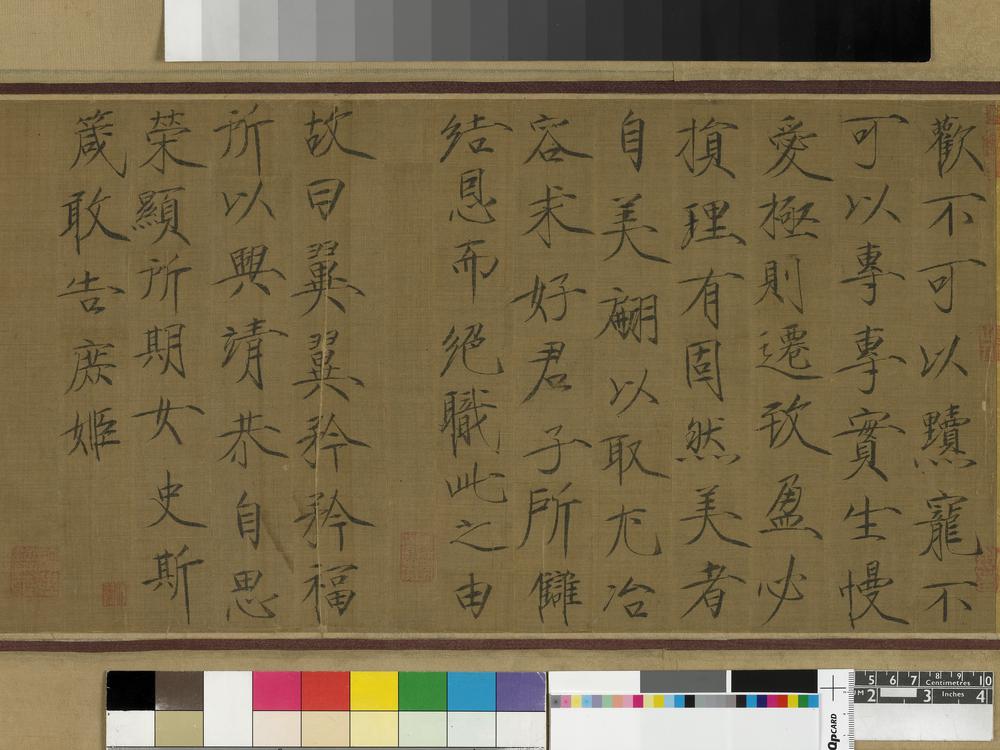 歡不可以黷寵不
可以專專實生慢
愛極則遷致盈必
損理有固然美者
自美翩以取尤冶
容求好君子所讎
結恩而絕職此之由
故曰翼翼矜矜福
所以興靖恭自思
榮顯所期女史斯
箴敢告庶姬
5 6 7 8 9 10
Centimetres
2 3 Inches 4
QPCARD